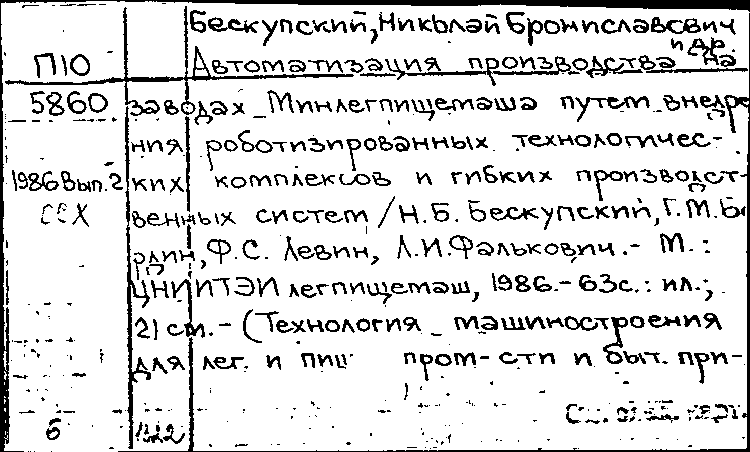 Бескупский, Николай Брониславович
и др.
П10 Автоматизация производства на
5860 заводах Минлегпищемаша путем внедре
ния роботизированных технологичес-
1986 Вып. 2 ких комплексов и гибких производст-
ССХ венных систем / Н.Б. Бескупский, Г.М. Бе
рлин, Ф.С. Левин, Л.И. Фалькович. - М.:
ЦНИИТЭИлегпищемаш, 1986. - 63с.: ил.;
21 см. - (Технология машиностроения
для лег. и пищ пром-сти и быт. при-
См. след. карт.
6